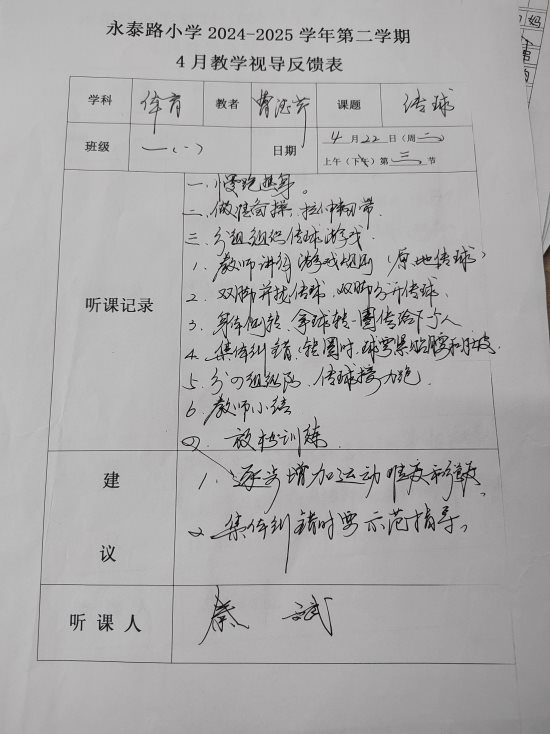 永泰路小学 2024-2025 学年第二学期
4 月教学视导反馈表
学科 体育 教者 曹 课题 传球
班级 一(一) 日期 4月22日(周二)
上午(下午)第三节
听课记录
一、慢跑热身。
二、做准备操、拉伸韧带
三、分组组织传球游戏
1、教师讲解游戏规则(原地传球)
2、双脚并拢传球、双脚分开传球
3、身体侧转、拿球转一圈传给下个人
4、集体纠错、转圈时、球要紧贴腹和
5、分四组组队、传球接力跑
6、教师小结
四、放松训练
建议
1、逐步增加运动难度和强度。
2、集体纠错时要示范指导。
听课人 秦斌
妈
的